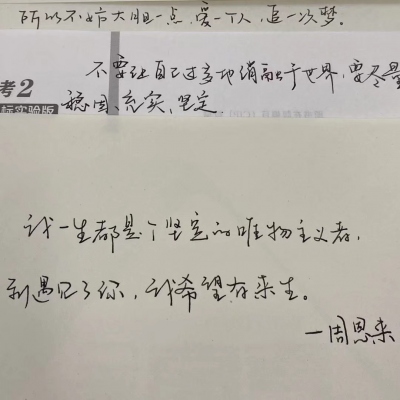 所以不妨大胆一点,爱一个人,追一次梦。
不要让自己过多地消融于世界,要尽量
考2
稳固、充实、坚定
标实验版
我一生都是个坚定的唯物主义者,
到遇见了你,我希望有来生。
—周恩来